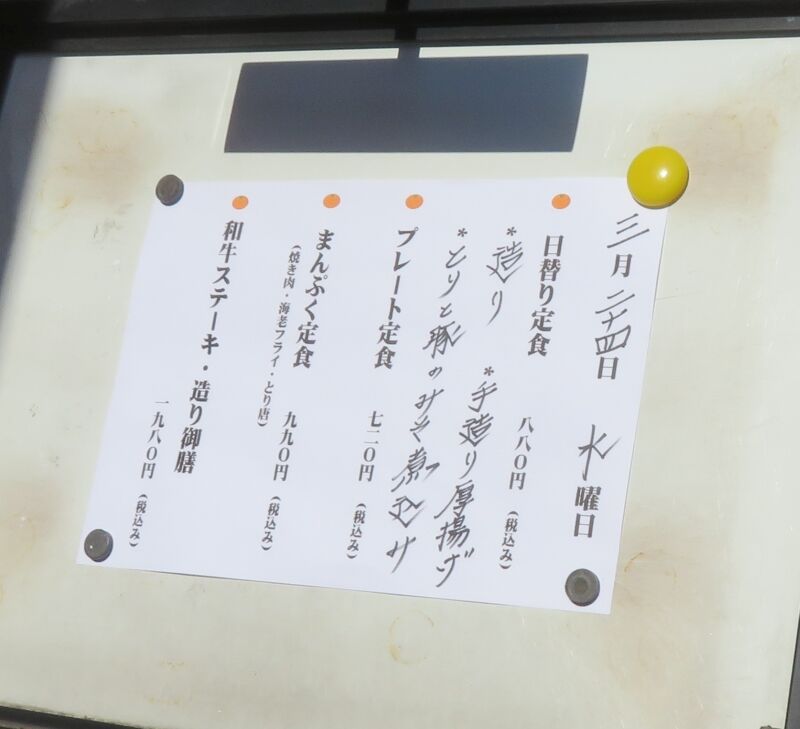 三月二十四日 水曜日
日替り定食 八八〇円(税込み)
*造り *手造り厚揚げ
*とりと豚のみそ煮込み
プレート定食 七二〇円(税込み)
まんぷく定食 九九〇円(税込み)
(焼き肉・海老フライ・とり唐)
和牛ステーキ・造り御膳
一九八〇円(税込み)